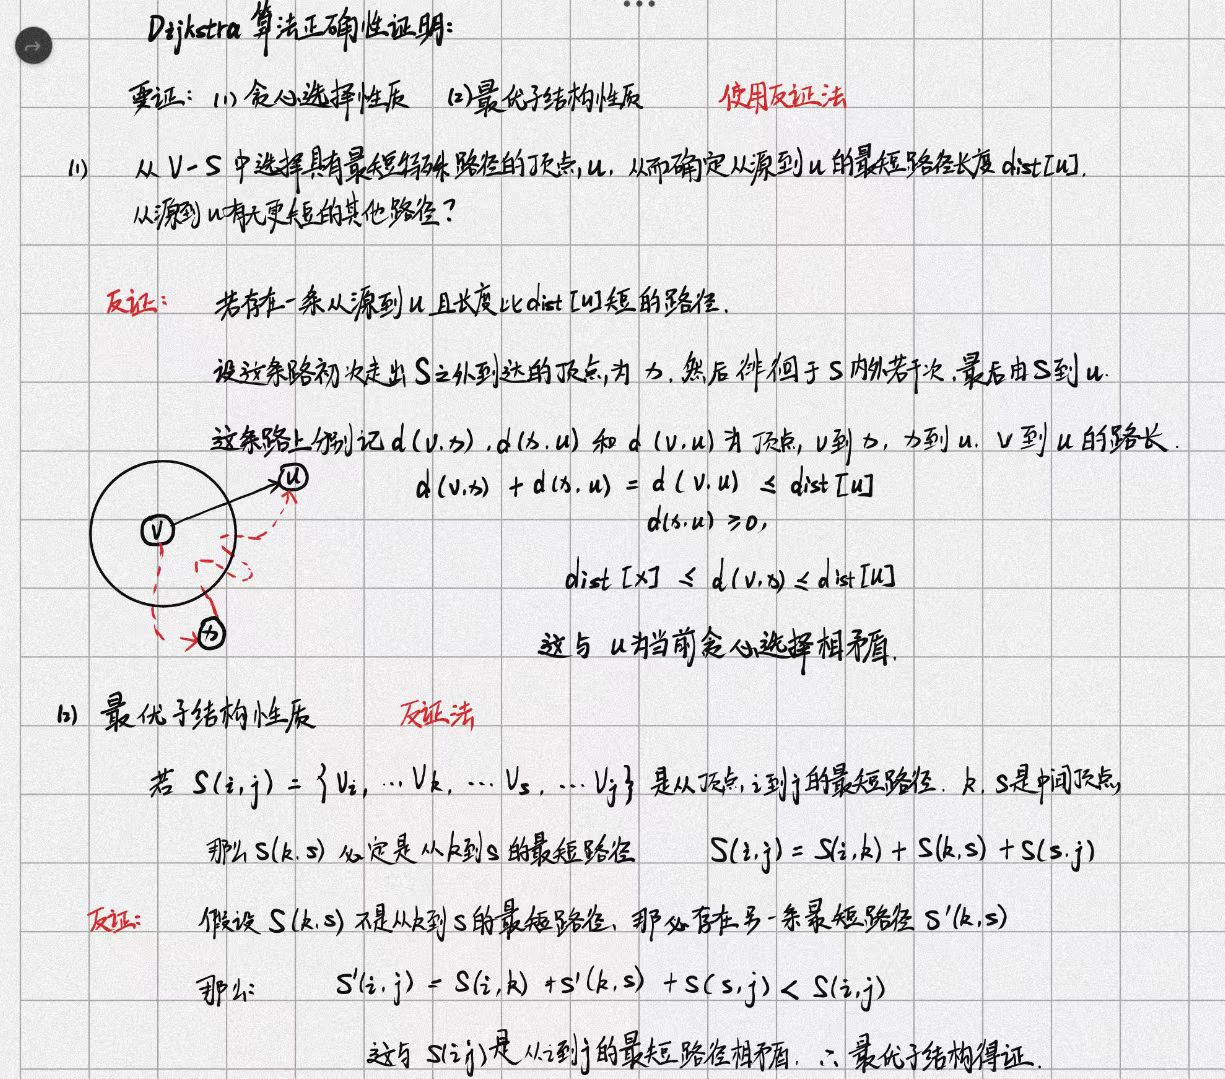 Dijkstra 算法正确性证明:
要证: (1) 贪心选择性质 (2) 最优子结构性质 使用反证法
(1) 从 V-S 中选择具有最短特殊路径的顶点 u, 从而确定从源到 u 的最短路径长度 dist[u].
从源到 u 有无更短的其他路径?
反证: 若存在一条从源到 u 且长度比 dist[u] 短的路径.
设这条路初次走出 S 之外到达的顶点为 x, 然后徘徊于 S 内外若干次, 最后由 S 到 u.
这条路上分别记 d(v,x), d(x,u) 和 d(v,u) 为顶点 v 到 x, x 到 u, v 到 u 的路长.
d(v,x) + d(x,u) = d(v,u) ≤ dist[u]
d(x,u) ≥ 0,
dist[x] ≤ d(v,x) ≤ dist[u]
这与 u 为当前贪心选择相矛盾.
u
v
x
(2) 最优子结构性质 反证法
若 S(i,j) = {Vi, … Vk, … Vs, … Vj} 是从顶点 i 到 j 的最短路径. k, s 是中间顶点,
那么 S(k,s) 必定是从 k 到 s 的最短路径 S(i,j) = S(i,k) + S(k,s) + S(s,j)
反证: 假设 S(k,s) 不是从 k 到 s 的最短路径, 那必存在另一条最短路径 S'(k,s)
那么: S'(i,j) = S(i,k) + S'(k,s) + S(s,j) < S(i,j)
这与 S(i,j) 是从 i 到 j 的最短路径相矛盾. ∴ 最优子结构得证.